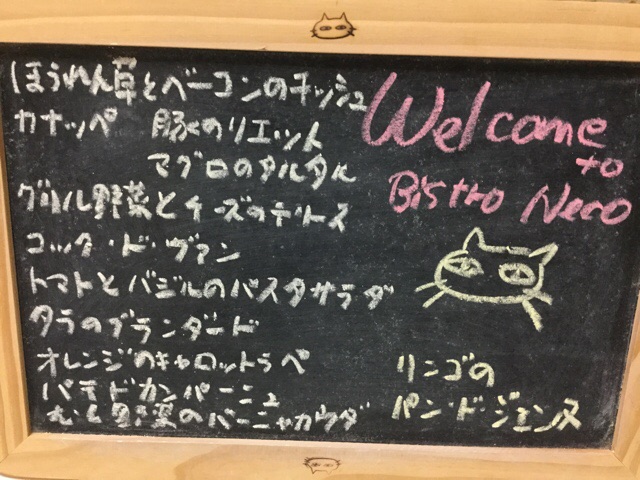 ほうれん草とベーコンのキッシュ
カナッペ 豚のリエット
マグロのタルタル
グリル野菜とチーズのテリーヌ
コック・ド・ヴァン
トマトとバジルのパスタサラダ
タラのブランダード
オレンジのキャロットラペ
パテドカンパーニュ
野菜のバーニャカウダ
Welcome
to
Bistro Neco
リンゴの
パン・ド・ジェンヌ